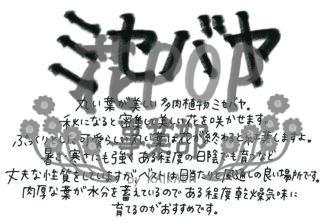 ミセバヤ
花POP
丸い葉が美しい多肉植物ミセバヤ。
秋になると密集した美しい花を咲かせます
ふっくらとした可愛らしい丸い葉は花が終わると
暑さ寒さにも強く ある程度の日陰でも育つなど
丈夫な性質をしていますが、ベストは日当たりと風通しの良い場所です。
肉厚な葉が水分を蓄えているので ある程度乾燥気味に
育てるのがおすすめです。